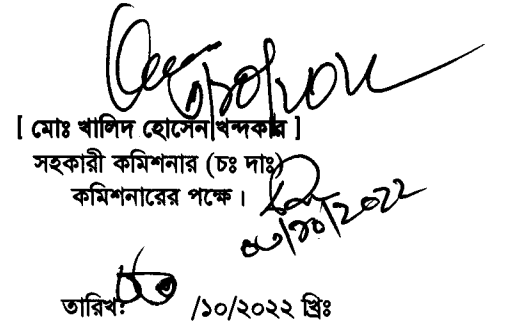 [ মোঃ খালিদ হোসেন খন্দকার ]
সহকারী কমিশনার (চঃ দাঃ)
কমিশনারের পক্ষে।
০৩/১০/২০২২
তারিখঃ /১০/২০২২ খ্রিঃ